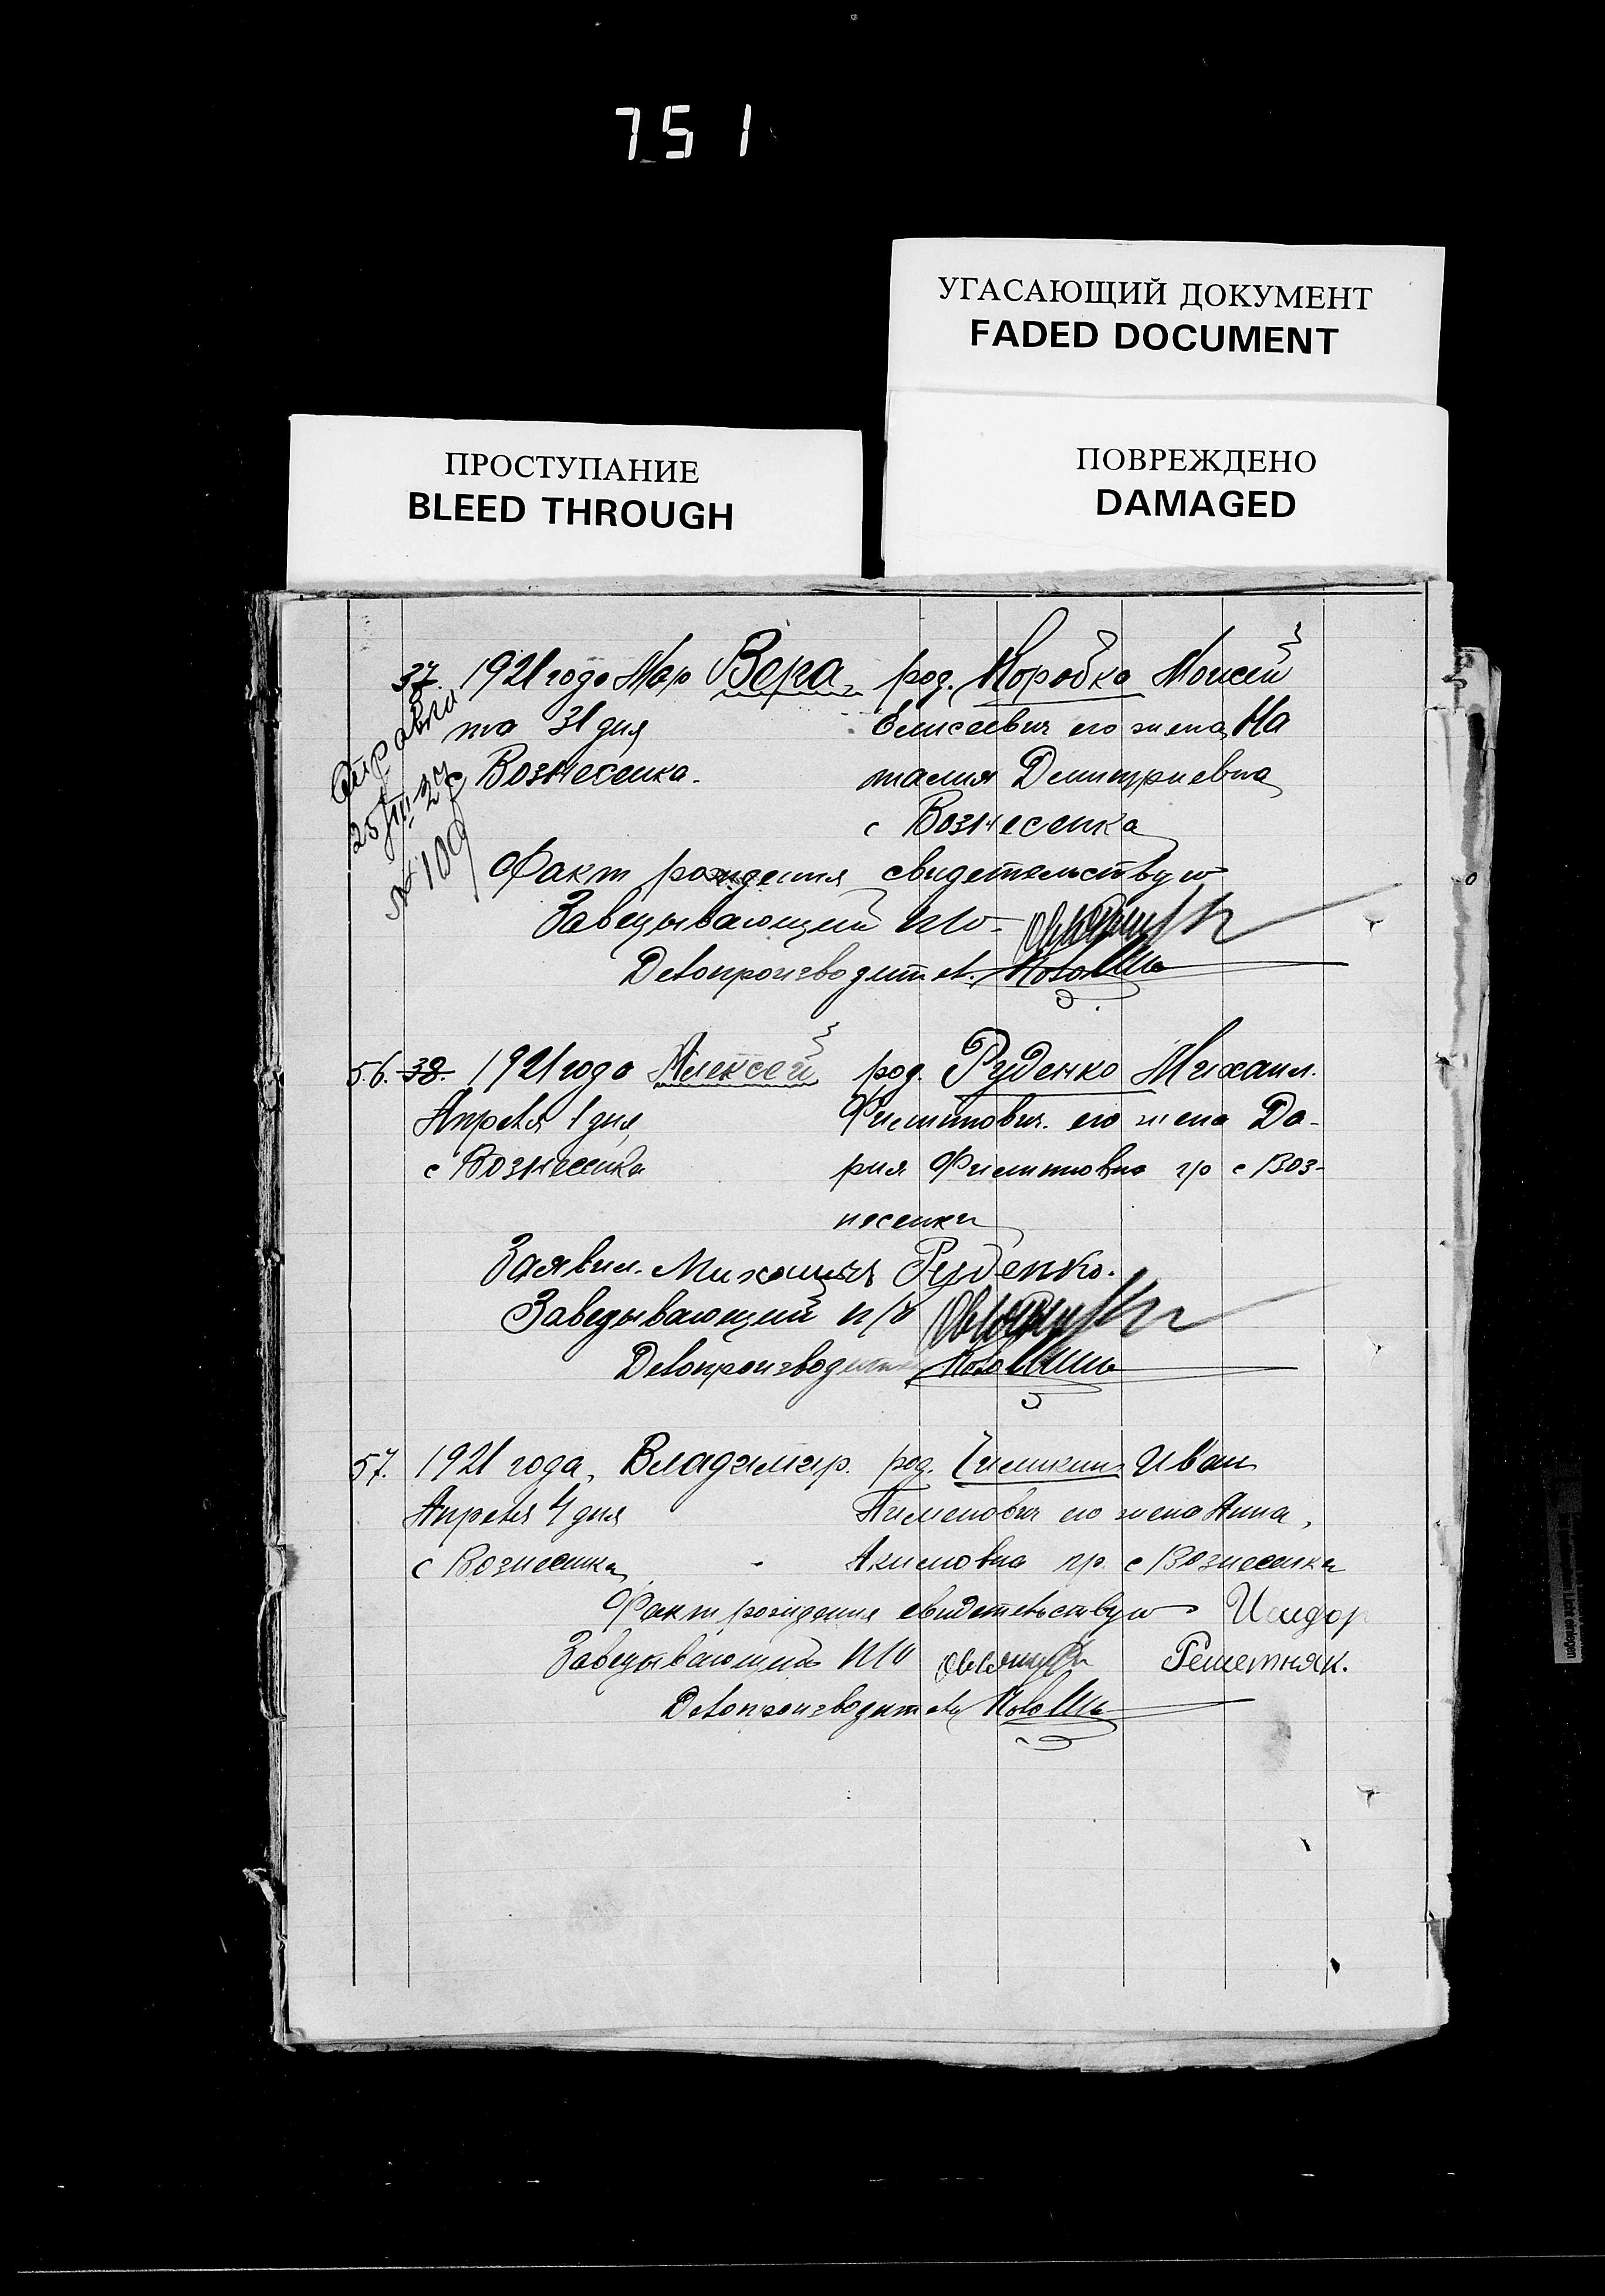 751
УГАСАЮЩИЙ ДОКУМЕНТ
FADED DOCUMENT
ПРОСТУПАНИЕ
BLEED THROUGH
ПОВРЕЖДЕНО
DAMAGED
37. 1921 года Мар Вера род. Коробка Моисей
та 31 дня Елисеевич его жена На
с Вознесенка. талия Дмитриевна
с Вознесенка
Справка
25/III-27
№ 109
Факт рождения свидетельствую
Заведывающий п/о
Делопроизводител.
56. 38. 1921 года Алексей род. Руденко Михаил.
Апреля 1 дня Филиппович. его жена Да-
с Вознесенка рия Филипповна гр с Воз-
несенки
Заявил. Михаилъ Руденко.
Заведывающий п/о
Делопроизводитель
57. 1921 года, Владимир. род. Иван
Апреля 4 дня Пименович его жена Анна,
с Вознесенка Акимовна гр. с Вознесенки
Факт рождения свидетельствую Исидор
Заведывающий п/о Решетняк.
Делопроизводитель